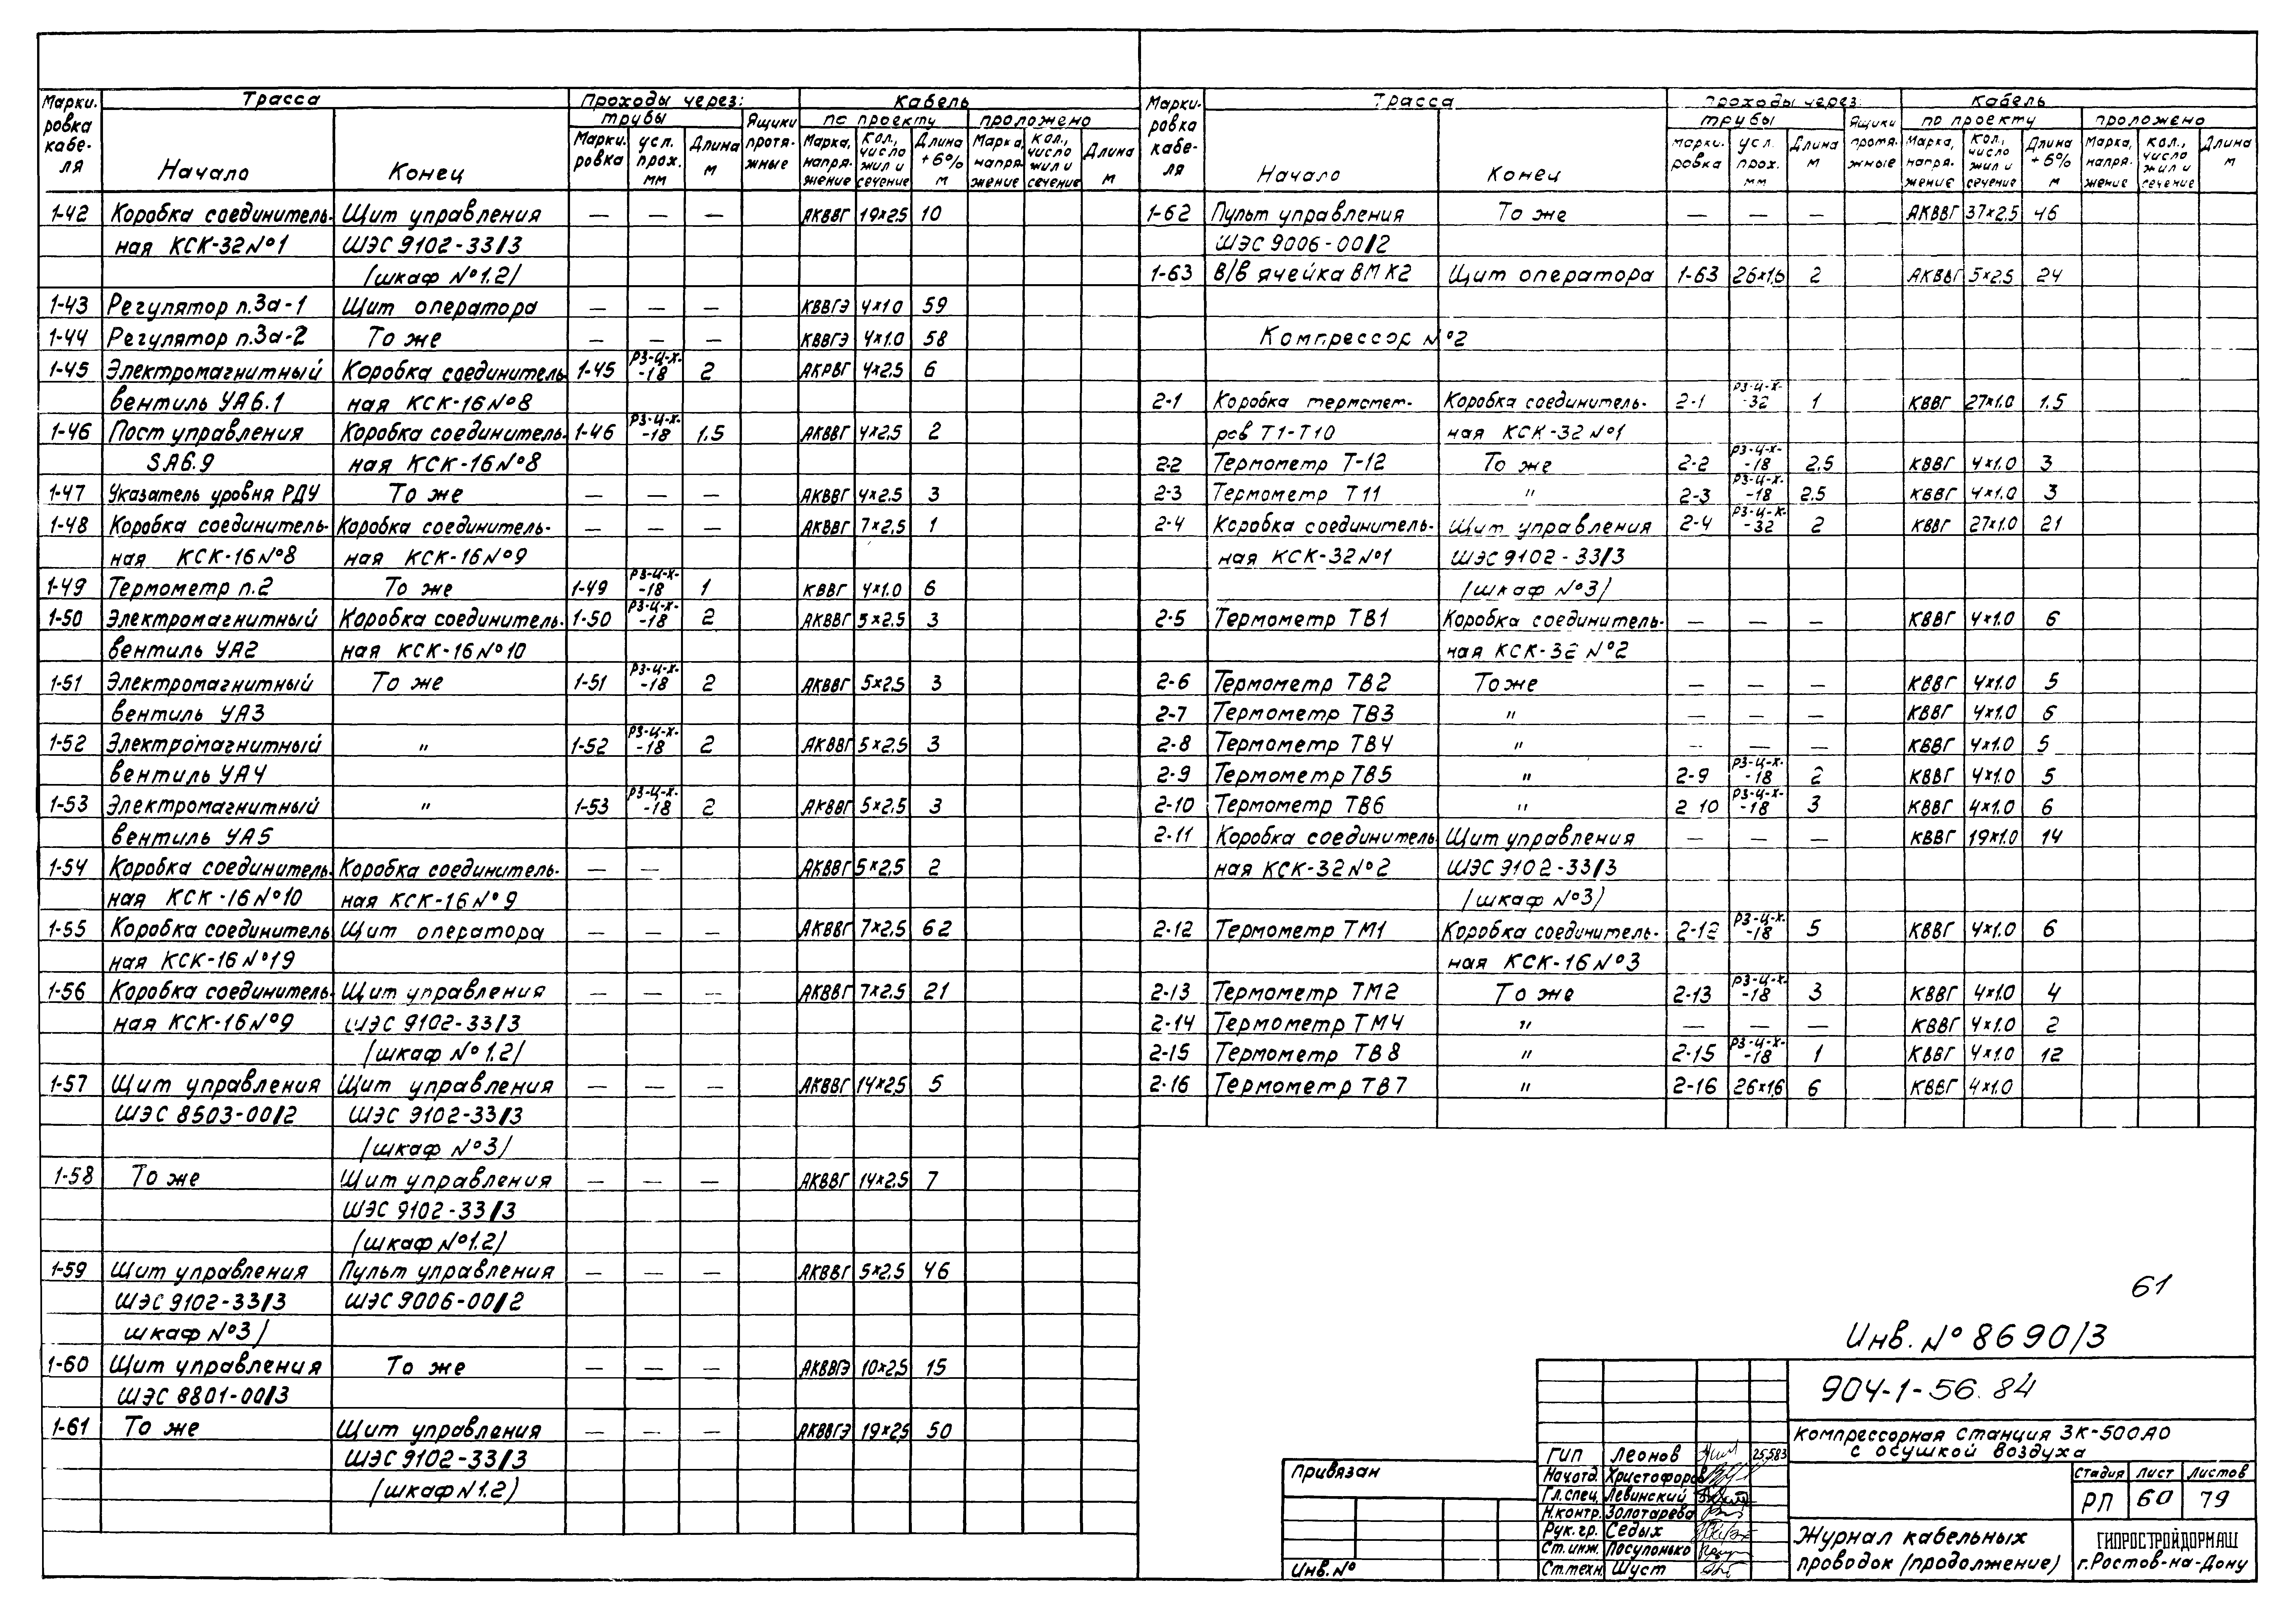 Марки- Трасса Проходы через: Кабель
ровка трубы Ящики по проекту проложено
кабе- Начало Конец Марки- усл. Длина протя- Марка, Кол., Длина Марка, Кол., Длина
ля ровка прох. м жные напря- число +6% напря- число м
мм жение жил и м жение жил и
сечение сечение
1-42 Коробка соединитель- Щит управления — — — АКВВГ 19×2.5 10
ная КСК-32 №1 ШЭС 9102-33/3
/шкаф №1.2/
1-43 Регулятор п.3а-1 Щит оператора — — — КВВГЭ 4×1.0 59
1-44 Регулятор п.3а-2 То же — — — КВВГЭ 4×1.0 58
1-45 Электромагнитный Коробка соединитель- 1-45 РЗ-Ц-Х--18 2 АКРВГ 4×2.5 6
вентиль УА6.1 ная КСК-16 №8
1-46 Пост управления Коробка соединитель- 1-46 РЗ-Ц-Х--18 1.5 АКВВГ 4×2.5 2
SA6.9 ная КСК-16 №8
1-47 Указатель уровня РДУ То же — — — АКВВГ 4×2.5 3
1-48 Коробка соединитель- Коробка соединитель- — — — АКВВГ 7×2.5 1
ная КСК-16 №8 ная КСК-16 №9
1-49 Термометр п.2 То же 1-49 РЗ-Ц-Х--18 1 КВВГ 4×1.0 6
1-50 Электромагнитный Коробка соединитель- 1-50 РЗ-Ц-Х--18 2 АКВВГ 5×2.5 3
вентиль УА2 ная КСК-16 №10
1-51 Электромагнитный То же 1-51 РЗ-Ц-Х--18 2 АКВВГ 5×2.5 3
вентиль УА3
1-52 Электромагнитный " 1-52 РЗ-Ц-Х--18 2 АКВВГ 5×2.5 3
вентиль УА4
1-53 Электромагнитный " 1-53 РЗ-Ц-Х--18 2 АКВВГ 5×2.5 3
вентиль УА5
1-54 Коробка соединитель- Коробка соединитель- — — АКВВГ 5×2.5 2
ная КСК-16 №10 ная КСК-16 №9
1-55 Коробка соединитель Щит оператора — — — АКВВГ 7×2.5 62
ная КСК-16 №19
1-56 Коробка соединитель- Щит управления — — — АКВВГ 7×2.5 21
ная КСК-16 №9 ШЭС 9102-33/3
/шкаф №1.2/
1-57 Щит управления Щит управления — — — АКВВГ 14×2.5 5
ШЭС 8503-00/2 ШЭС 9102-33/3
/шкаф №3/
1-58 То же Щит управления — — — АКВВГ 14×2.5 7
ШЭС 9102-33/3
/шкаф №1.2/
1-59 Щит управления Пульт управления — — — АКВВГ 5×2.5 46
ШЭС 9102-33/3 ШЭС 9006-00/2
шкаф №3/
1-60 Щит управления То же — — — АКВВГЭ 10×2.5 15
ШЭС 8801-00/3
1-61 То же Щит управления — — — АКВВГЭ 19×2.5 50
ШЭС 9102-33/3
/шкаф №1.2/
Марки- Трасса Проходы через: Кабель
ровка трубы Ящики по проекту проложено
кабе- Начало Конец Марки- усл. Длина протя- Марка, Кол., Длина Марка, Кол., Длина
ля ровка прох. м жные напря- число +6% напря- число м
мм жение жил и м жение жил и
сечение сечение
1-62 Пульт управления То же — — — АКВВГ 37×2.5 46
ШЭС 9006-00/2
1-63 В/в ячейка ВМК2 Щит оператора 1-63 26×1,6 2 АКВВГ 5×2.5 24
Компрессор №2
2-1 Коробка термомет- Коробка соединитель- 2-1 РЗ-Ц-Х--32 1 КВВГ 27×1.0 1.5
ров Т1-Т10 ная КСК-32 №1
2-2 Термометр Т-12 То же 2-2 РЗ-Ц-Х--18 2.5 КВВГ 4×1.0 3
2-3 Термометр Т11 " 2-3 РЗ-Ц-Х--18 2.5 КВВГ 4×1.0 3
2-4 Коробка соединитель- Щит управления 2-4 РЗ-Ц-Х--32 2 КВВГ 27×1.0 21
ная КСК-32 №1 ШЭС 9102-33/3
/шкаф №3/
2-5 Термометр ТВ1 Коробка соединитель- — — — КВВГ 4×1.0 6
ная КСК-32 №2
2-6 Термометр ТВ2 То же — — — КВВГ 4×1.0 5
2-7 Термометр ТВ3 " — — — КВВГ 4×1.0 6
2-8 Термометр ТВ4 " — — — КВВГ 4×1.0 5
2-9 Термометр ТВ5 " 2-9 РЗ-Ц-Х--18 2 КВВГ 4×1.0 5
2-10 Термометр ТВ6 " 2 10 РЗ-Ц-Х--18 3 КВВГ 4×1.0 6
2-11 Коробка соединитель Щит управления — — — КВВГ 19×1.0 14
ная КСК-32 №2 ШЭС 9102-33/3
/шкаф №3/
2-12 Термометр ТМ1 Коробка соединитель- 2-12 РЗ-Ц-Х--18 5 КВВГ 4×1.0 6
ная КСК-16 №3
2-13 Термометр ТМ2 То же 2-13 РЗ-Ц-Х--18 3 КВВГ 4×1.0 4
2-14 Термометр ТМ4 " — — — КВВГ 4×1.0 2
2-15 Термометр ТВ8 " 2-15 РЗ-Ц-Х--18 1 КВВГ 4×1.0 12
2-16 Термометр ТВ7 " 2-16 26×1,6 6 КВВГ 4×1.0
61
Инв. № 8690/3
904-1-56.84
Компрессорная станция 3К-500АО
с осушкой воздуха
Стадия Лист Листов
РП 60 79
Журнал кабельных
проводок (продолжение)
ГИПРОСТРОЙДОРМАШ
г.Ростов-на-Дону
ГИП Леонов 25.5.83
Нач.отд. Христофоров
Гл.спец. Левинский
Н.контр. Золотарева
Рук.гр. Седых
Ст.инж. Посулонько
Ст.техн. Шуст
Привязан
Инв.№